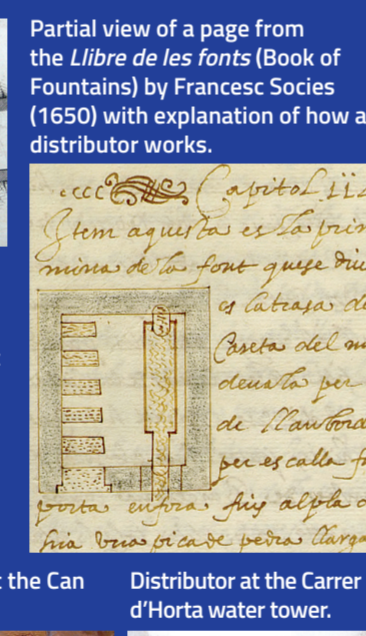 Partial view of a page from
the Llibre de les fonts (Book of
Fountains) by Francesc Socies
(1650) with explanation of how a
distributor works.
Capitol
Item aquesta es la prim
mina de la font que se diu
es la trasa de
Caseta del m
devalla per
de
per escalla
porta enfora fins al pla
una pica de pedra llarga
t the Can
Distributor at the Carrer
d'Horta water tower.